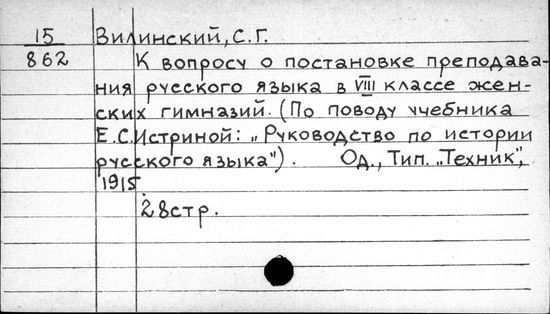 15 Вилинский, С.Г.
862 К вопросу о постановке преподава-
ния русского языка в VIII классе жен-
ских гимназий. (По поводу учебника
Е.С.Истриной: „Руководство по истории
русского языка"). Од., Тип. „Техник",
1915.
28стр.